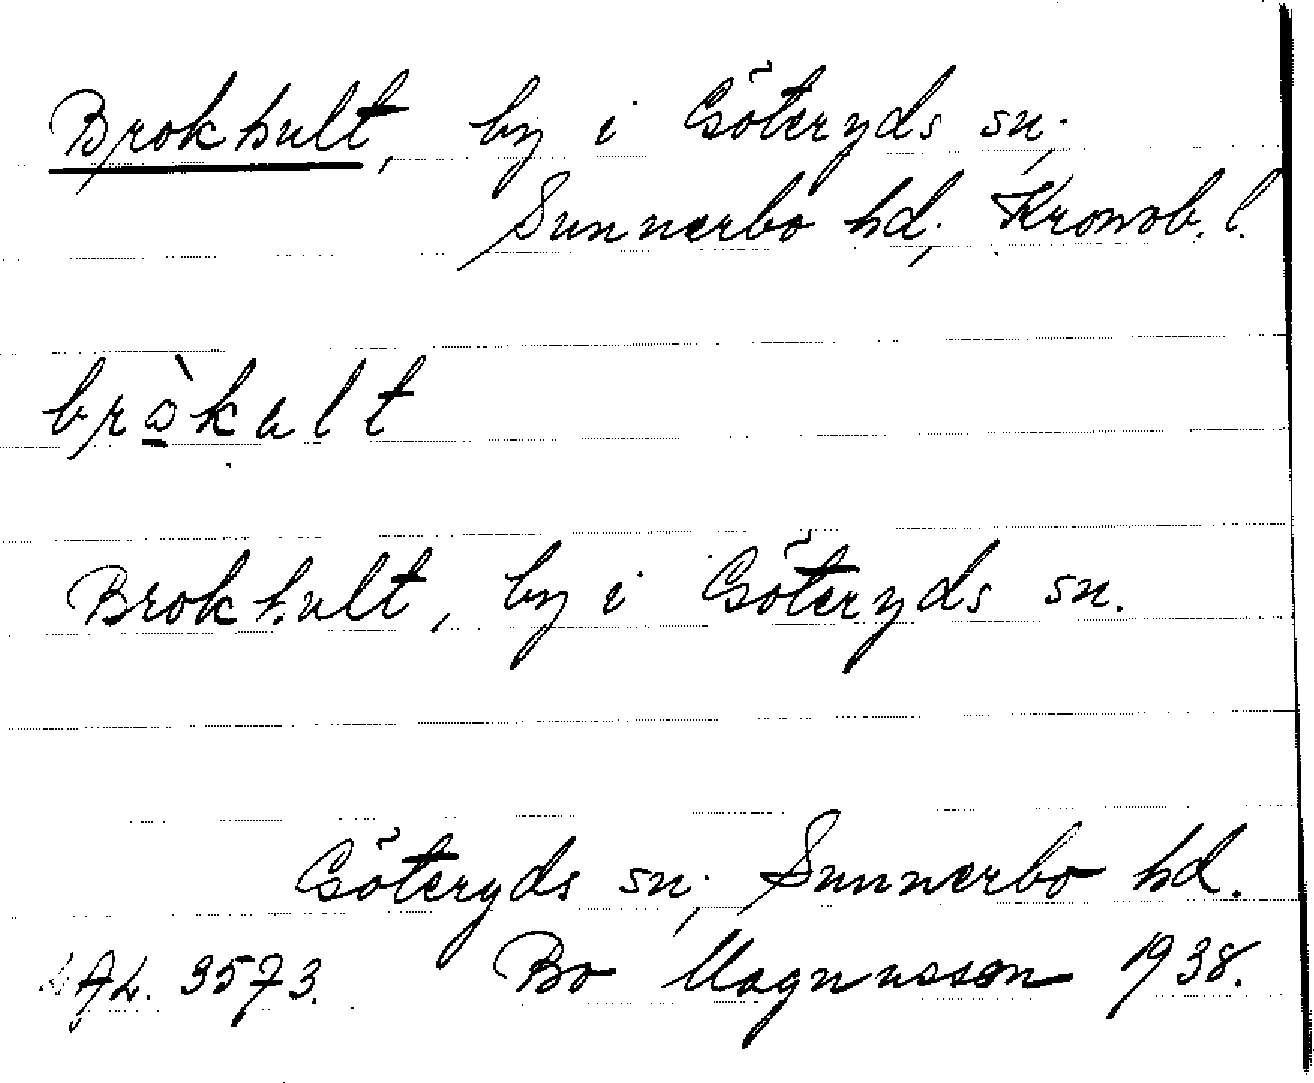 Brokhult, by i Göteryds sn.,
Sunnerbo hd., Kronob. l.
bròkult
Brokhult, by i Göteryds sn.
Göteryds sn., Sunnerbo hd.
LAL. 3573. Bo Magnusson 1938.